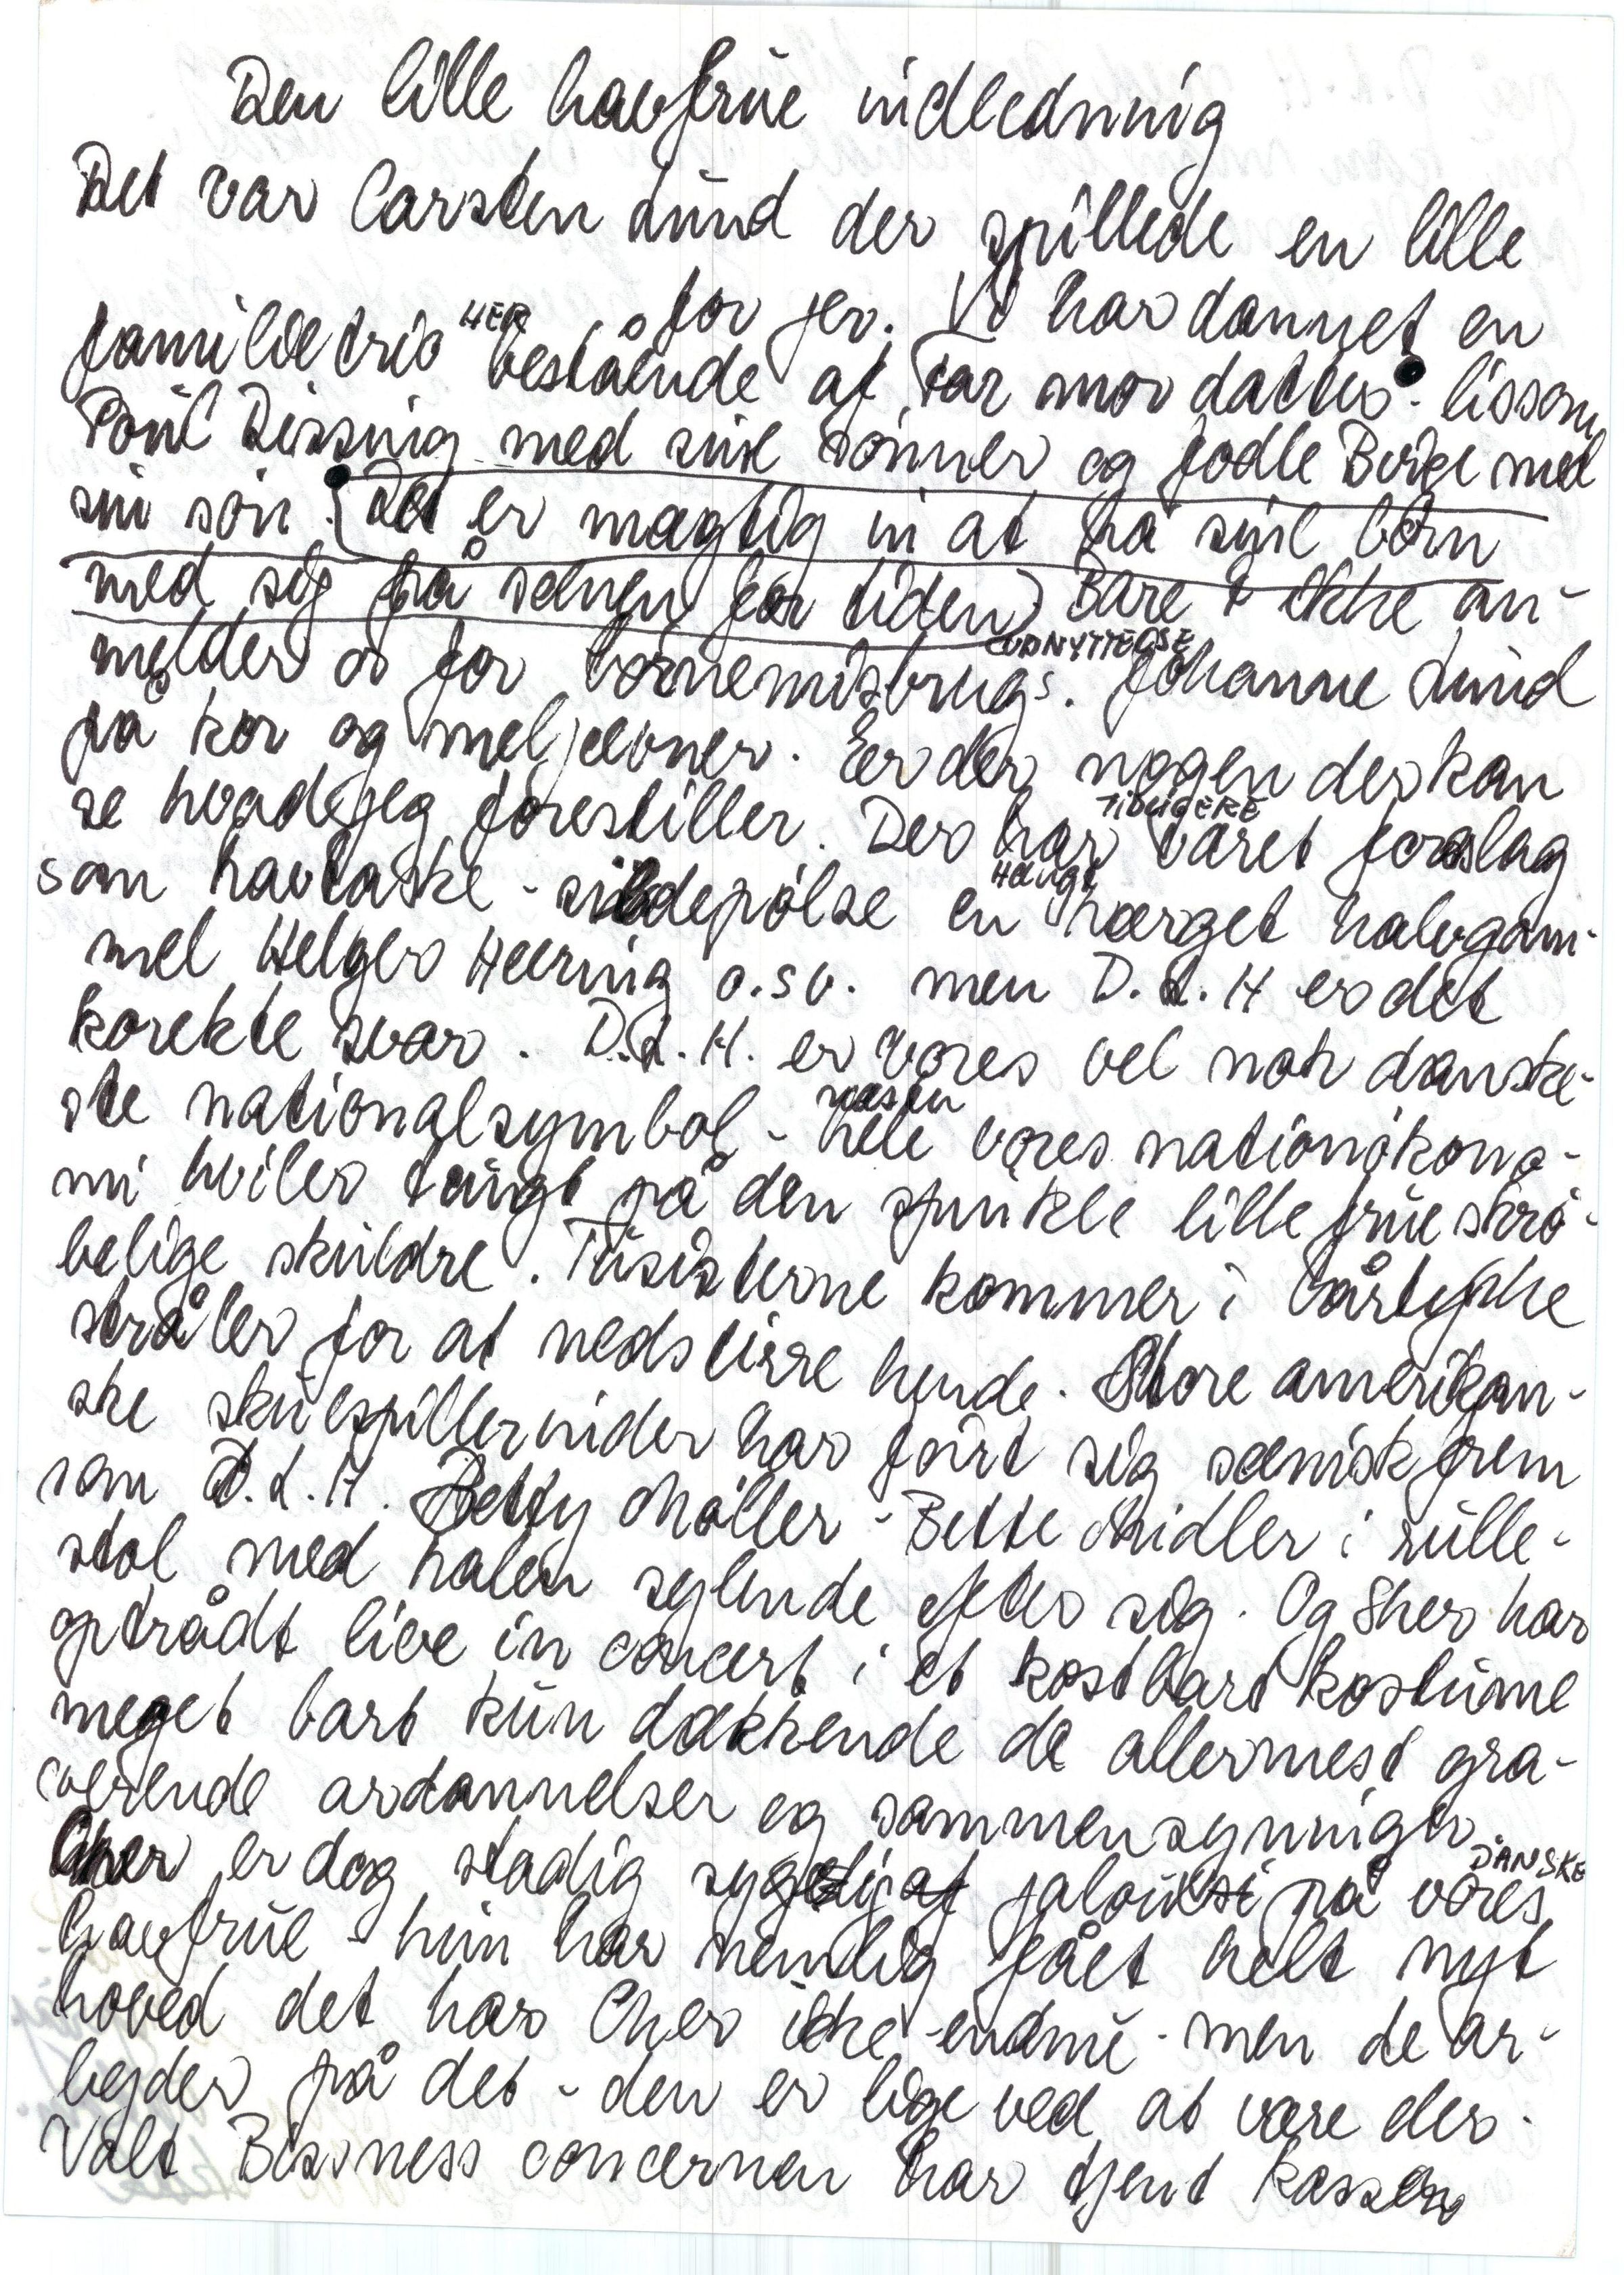 Den lille havfrue indledning
Det var Carsten Lund der spillede en lille
for jer. Vi har dannet en
familie trio HER bestående af Far mor datter - lissom
Poul Dissing med sine sönner og Jodle Birge med
sin sön. (Det er mægtig in at ha sine börn
med sig på scenen för tiden) Bare I ikke an-
melder os for börnemisbrug s. UDNYTTELSE Johanne Lund
på kor og meljævner. Er der nogen der kan
se hvad jeg forestiller. Der har TIDLIGERE været forslag
som havtaske - sildepölse en HAUGE hærget halvgam-
mel Helger Heering o.s.v. men D.L.H er det
korekte svar. D.L.H. er vores vel nok danske-
ste nationalsymbol - næsten hele vores nationökono-
mi hviler tungt på den spinkle lille frue skrö-
belige skuldre. Turisterne kommer i lårtykke
stråler for at nedstirre hende. Store amerikan-
ske skuespillerinder har fört sig scenisk frem
som D.L.H. Betty Möller - Bette Midler i rulle-
stol med halen sejlende efter sig. Og Sher har
optrådt live in concert i et kostbart kostume
meget bart kun dækkende de allermest gra-
verende ardannelser og sammensyninger.
Cher er dog stadig syg af jalousi på vores DANSKE
havfrue - hun har nemlig fået helt nyt
hoved det har Cher ikke endnu - men de ar-
bejder på det - den er lige ved at være der.
Valt Bissness concernen har tjent kassen